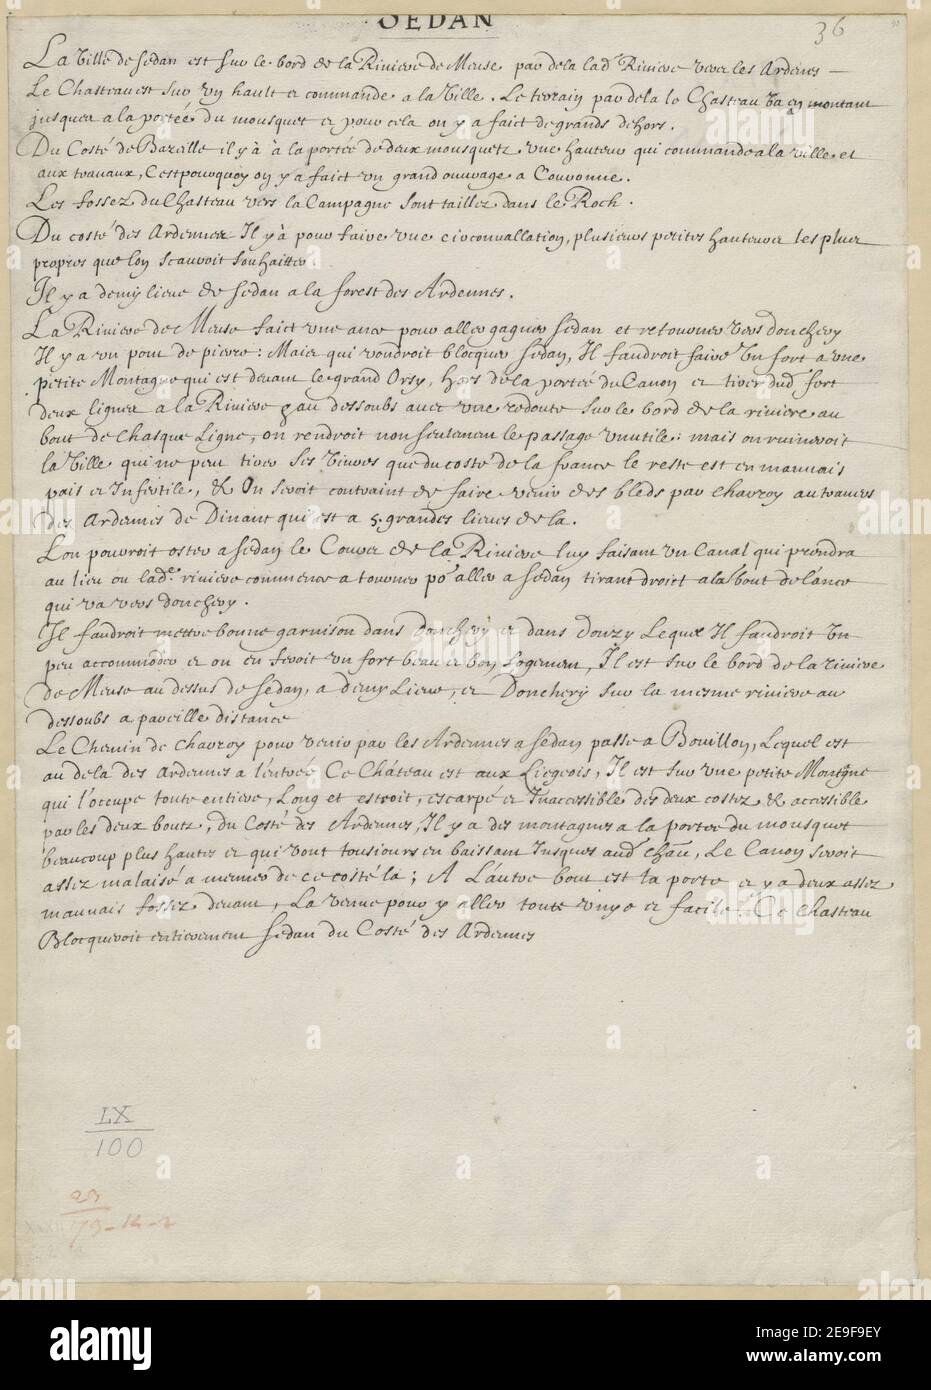 SEDAN
36
La Ville de Sedan est sur le bord de la Riviere de Meuse par dela lad. Riviere vers les Ardenes
Le Chasteau est sur un hault et commande a la Ville. Le terrain par dela le Chasteau va en montant
jusques a la portée du mousquet et pour cela on y a faict de grands dehors.
Du Costé de Bazeille il y à à la portée de deux mousquetz une hauteur qui commande a la ville et
aux travaux, C'est pourquoy on y a faict un grand ouvrage a Couronne.
Les fossez du Chasteau vers la Campagne sont taillez dans le Roch.
Du costé des Ardennes Il y à pour faire une circonvallation, plusieurs petites hauteurs les plus
propres que lon scauroit souhaitter.
Il y a demy lieue de Sedan a la forest des Ardennes.
La Riviere de Meuse faict une ance pour aller gagner Sedan et retourner vers donchery
Il y a un pont de pierre: Mais qui voudroit blocquer Sedan, Il faudroit faire un fort a une
petite Montagne qui est devant le grand Orsy, hors de la portée du Canon et tirer dud. fort
deux lignes a la Riviere pau dessoubs avec une redoute sur le bord de la riviere au
bout de chasque Ligne, on rendroit non seulement le passage unutile: mais on ruineroit
la Ville qui ne peu tirer ses vivres que du costé de la france le reste est en mauvais
pais et Infertile, & On seroit contraint de faire venir des bleds par charroy au travers
des Ardennes de Dinant qui est a 5. grandes lieues de la.
Lon pourroit oster a Sedan le Couver de la Riviere luy faisant un Canal qui prendra
au lieu ou lade. riviere commence a tourner po. aller a Sedan tirant droict a la bout de l'ance
qui va vers donchery.
Il faudroit mettre bonne garnison dans donchery et dans Douzy Lequel Il faudroit un
peu accommoder et ou en seroit un fort beau et bon Logement, Il est sur le bord de la riviere
de Meuse au dessus de Sedan, a demy Lieue, et Donchery sur la mesme riviere au
dessoubs a pareille distance
Le Chemin de charroy pour venir par les Ardennes a Sedan passe a Bouillon, Lequel est
au dela des Ardennes a l'entrée Ce Château est aux Liegeois, Il est sur une petite Montagne
qui l'occupe toute entiere, Long et estroit, escarpé et Inaccessible des deux costez & accessible
par les deux boutz, du Costé des Ardennes, Il y a des montagnes a la portée du mousquet
beaucoup plus hautes et qui vont tousiours en baissant Jusques aud. Chau, Le Canon seroit
assez malaisé a mener de ce costé la; A L'autre bout est la porte et y a deux assez
mauvais fossez devant, La venue pour y aller toute unye et facile. Ce Chasteau
Blocqueroit entierement Sedan du Costé des Ardennes
LX
100
23
79-14-2
alamy
Image ID: 2E9F9EY
www.alamy.com